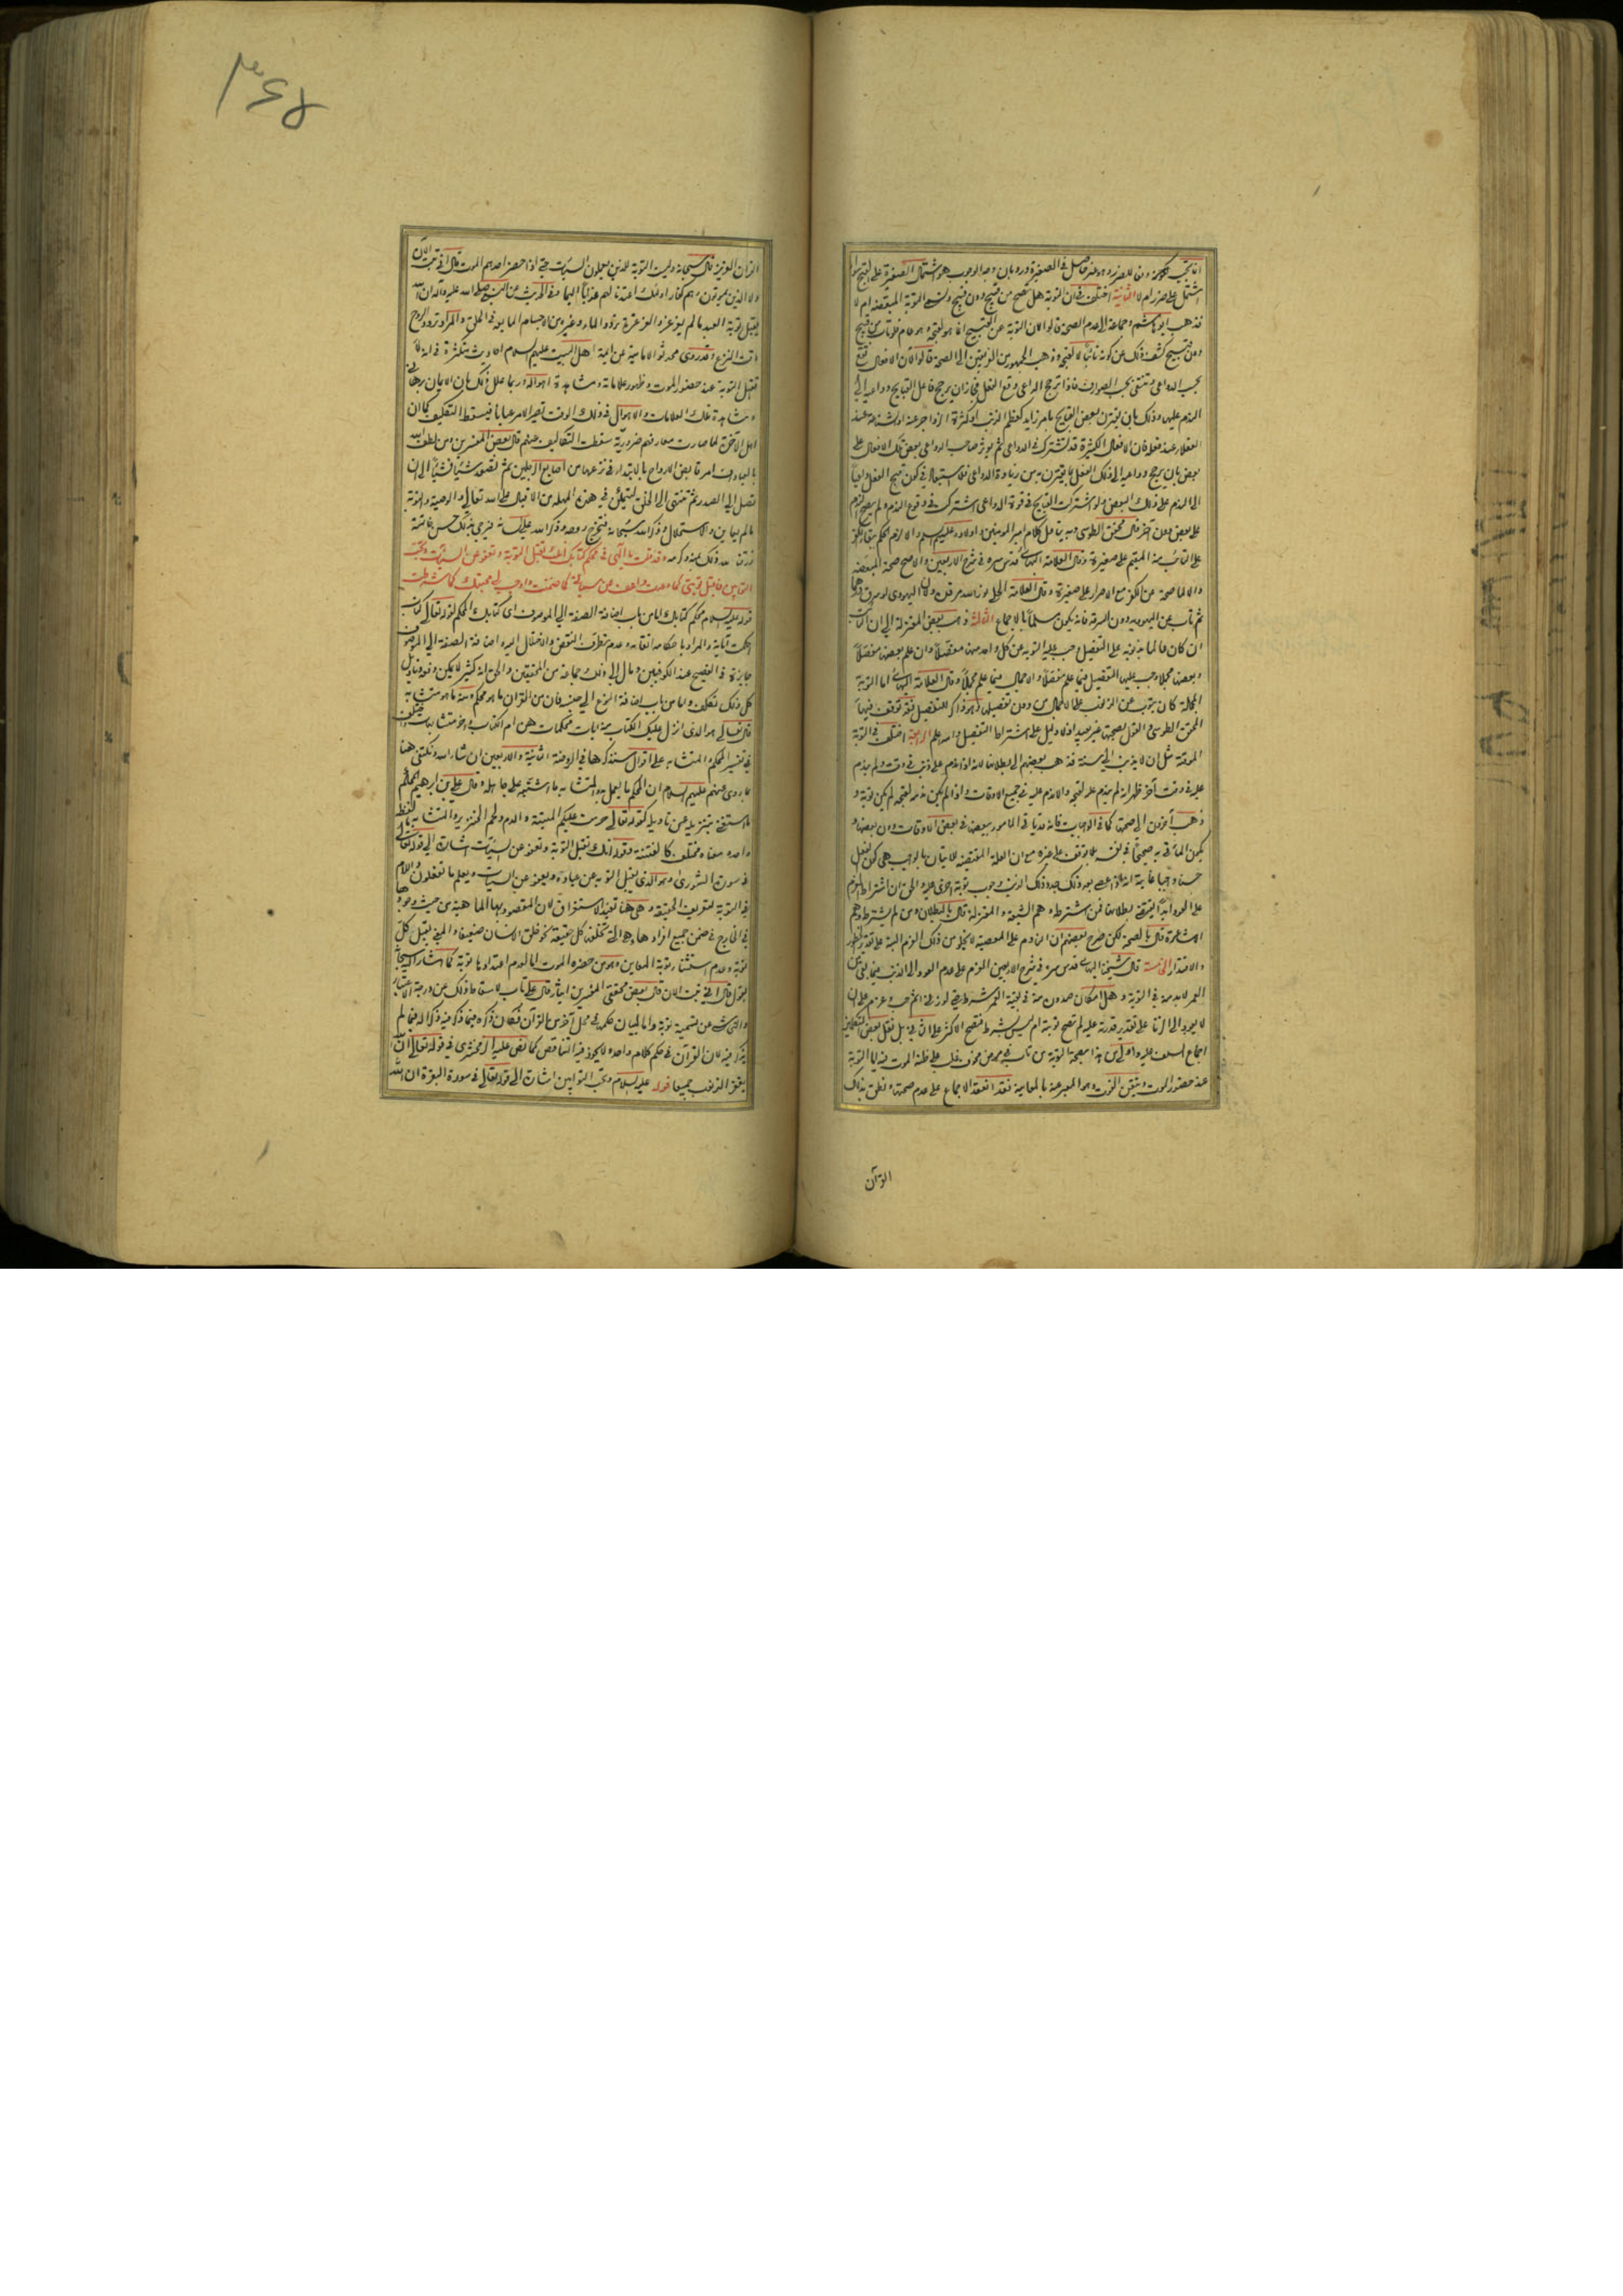 اشتمل على ضرر ام لا الثانية اختلف في ان التوبة هل تصح من قبيح دون قبيح وتسمى التوبة المبعضة ام لا
فذهب ابو هاشم وجماعة الى عدم الصحة قالوا لان التوبة عن القبيح انما هو لقبحه وهو عام فلو تاب من قبيح
دون قبيح كشف ذلك عن كونه تائبا لا لقبحه وذهب الجمهور من الفريقين الى الصحة قالوا لان الافعال تقع
بحسب الدواعي وتنتفي بحسب الصوارف فاذا ترجح الداعي وقع الفعل فجاز ان يرجح فاعل القبايح دواعيه الى
الندم عليها وذلك بان يقترن ببعض القبايح امر زايد كعظم الذنب او كثرة الزواجر عنه او شناعته عند
العقلاء عند فعله فان الافعال الكثيرة قد تشترك في الدواعي ثم يوثر صاحب الدواعي بعض تلك الافعال على
الى الندم على ذلك البعض ولو اشتركت القبايح في قوة الدواعي اشتركت في وقوع الندم ولم يصح الندم
على بعض دون آخر قال المحقق الطوسي وبه يتاول كلام امير المؤمنين واولاده عليهم السلام والا لزم الحكم ببقاء الكفر
على التائب منه المقيم على صغيرة وقال العلامة البهائي قدس سره في شرح الاربعين والاصح صحة المبعضة
والا لما صحت عن الكفر مع الاصرار على صغيرة وقال العلامة الحلي
ثم تاب عن اليهودية دون السرقة فانه يكون مسلما بالاجماع الثالثة ذهب بعض المعتزلة الى ان التائب
ان كان عالما بذنوبه على التفصيل وجب عليه التوبة عن كل واحد منها مفصلا وان علم بعضها مفصلا
وبعضها مجملا وجب عليه التفصيل فيما علم مفصلا والاجمال فيما علم مجملا وقال العلامة البهائي اما التوبة
المجملة كان يتوب عن الذنوب على الاجمال من دون تفصيلها وهو ذاكر للتفصيل فقد توقف فيها
المحقق الطوسي والقول بصحتها غير بعيد اذ لا دليل على اشتراط التفصيل والله اعلم الرابعة اختلف في التوبة
الموقتة مثل ان لا يذنب الى سنة فذهب بعضهم الى بطلانها لانه اذا ندم على ذنب في وقت ولم يندم
عليه في وقت آخر ظهر انه لم يندم عليه لقبحه والا ندم عليه في جميع الاوقات واذا لم يكن ندمه لقبحه لم يكن توبة و
ذهب آخرون الى صحتها كما في الواجبات فانه قد يأتي المامور ببعضها في بعض الاوقات دون بعضها و
يكون الماتي به صحيحا في نفسه بلا توقف على غيره مع ان العلة المقتضية للاتيان بالواجب هي كون الفعل
حسنا واجبا غاية انه اذا عصى بعد ذلك جدد ذلك الذنب وجوب توبة اخرى عليه والحق ان اشتراط العزم
على عدم العود ابدا يقتضي بطلانها فمن اشترطه وهم الشيعة والمعتزلة قال بالبطلان ومن لم يشترطه وهم
الاشاعرة قال بالصحة لكن صرح بعضهم ان الندم على المعصية لا يخلو من ذلك العزم البتة على تقدير الخطور
والاقتدار الخامسة قال شيخنا البهائي قدس سره في شرح الاربعين العزم على عدم العود الى الذنب فيما بقي من
العمر لابد منه في التوبة وهل امكان صدوره منه في بقية العمر شرط حتى لو زنى ثم جب وعزم على ان
لا يعود الى الزنا على تقدير قدرته عليه لم تصح توبته ام ليس بشرط فتصح الاكثر على الثاني بل نقل بعض المتكلمين
اجماع السلف عليه واولى من هذا بصحة التوبة من تاب في مرض مخوف غلب على ظنه الموت فيه اما التوبة
عند حضور الموت وتيقن الفوت وهو المعبر عنه بالمعاينة فقد انعقد الاجماع على عدم صحتها ونطق بذلك
القرآن
القرآن العزيز قال سبحانه وليست التوبة للذين يعملون السيئات حتى اذا حضر احدهم الموت قال اني تبت الآن
ولا الذين يموتون وهم كفار اولئك اعتدنا لهم عذابا اليما وفي الحديث عن النبي صلى الله عليه وآله ان الله
يقبل توبة العبد ما لم يغرغر والغرغرة تردد الماء وغيره من الاجسام المايعة في الحلق والمراد تردد الروح
وقت النزع وقد روى محدثوا الامامية عن ائمة اهل البيت عليهم السلام احاديث متكثرة في انه لا
تقبل التوبة عند حضور الموت وظهور علاماته ومشاهدة اهواله وربما علل ذلك بان الايمان برهاني
ومشاهدة تلك العلامات والاهوال في ذلك الوقت تصير الامر عيانا فيسقط التكليف كما ان
اهل الآخرة لما صارت معارفهم ضرورية سقطت التكاليف عنهم قال بعض المفسرين ومن لطف الله
بالعباد ان امر قابض الارواح بالابتداء في نزعها من اصابع الرجلين ثم تصعد شيئا فشيئا الى ان
تصل الى الصدر ثم تنتهي الى الحلق ليتمكن في هذه المهلة من الاقبال على الله تعالى والوصية والتوبة
ما لم يعاين والاستحلال وذكر الله سبحانه فتخرج روحه وذكر الله على لسانه فيرجى بذلك حسن خاتمته
رزقنا الله ذلك بمنه وكرمه وقد قلت يا الهي في محكم كتابك انك تقبل التوبة وتعفو عن السيئات وتحب
التوابين فاقبل توبتي كما وعدت واعف عن سيئاتي كما ضمنت واوجب لي محبتك كما شرطت
قوله عليه السلام محكم كتابك اما من باب اضافة الصفة الى الموصوف اي كتابك المحكم لقوله تعالى كتاب
احكمت آياته والمراد باحكامه اتقانه وعدم تطرق النقض والاختلال اليه واضافة الصفة الى الموصوف
جايزة في الفصيح عند الكوفيين ومال الى ذلك جماعة من المحققين
كل ذلك تكلف واما من باب اضافة النوع الى جنسه فان من القرآن ما هو محكم ومنه ما هو متشابه
قال تعالى هو الذي انزل عليك الكتاب منه آيات محكمات هن ام الكتاب واخر متشابهات واختلف
في تفسير المحكم والمتشابه على اقوال سنذكرها في الروضة الثانية والاربعين ان شاء الله ونكتفي هنا
بما روي عنهم عليهم السلام ان المحكم ما يعمل به والمتشابه ما اشتبه على جاهله وقال علي بن ابراهيم المحكم
ما استغني بتنزيله عن تاويله كقوله تعالى حرمت عليكم الميتة والدم ولحم الخنزير والمتشابه ما لفظه
واحد ومعناه مختلف كالفتنة وقوله انك تقبل التوبة وتعفو عن السيئات اشارة الى قوله تعالى
في سورة الشورى وهو الذي يقبل التوبة عن عباده ويعفو عن السيئات ويعلم ما تفعلون واللام
في التوبة لتعريف الحقيقة وهي هنا تفيد الاستغراق لان المقصود بها الماهية من حيث وجودها
في الخارج في ضمن جميع افرادها
توبة وعدم استثناء توبة المعاين وهو من حضره الموت اما لعدم اعتدادها توبة كما اشار اليه سبحانه
بقوله قال اني تبت الآن قال بعض محققي المفسرين ايثار قال على تاب لاسقاط ذلك عن درجة الاعتبار
والتحاشي عن تسميته توبة واما لبيان حكمه في محل آخر من القرآن فكان ذكره فيما ذكر فيه ذكرا له فيما لم
يذكر فيه لان القرآن في حكم كلام واحد ولا يجوز فيه التناقض كما نص عليه الزمخشري في قوله تعالى ان الله
يغفر الذنوب جميعا قوله عليه السلام وتحب التوابين اشارة الى قوله تعالى في سورة البقرة ان الله